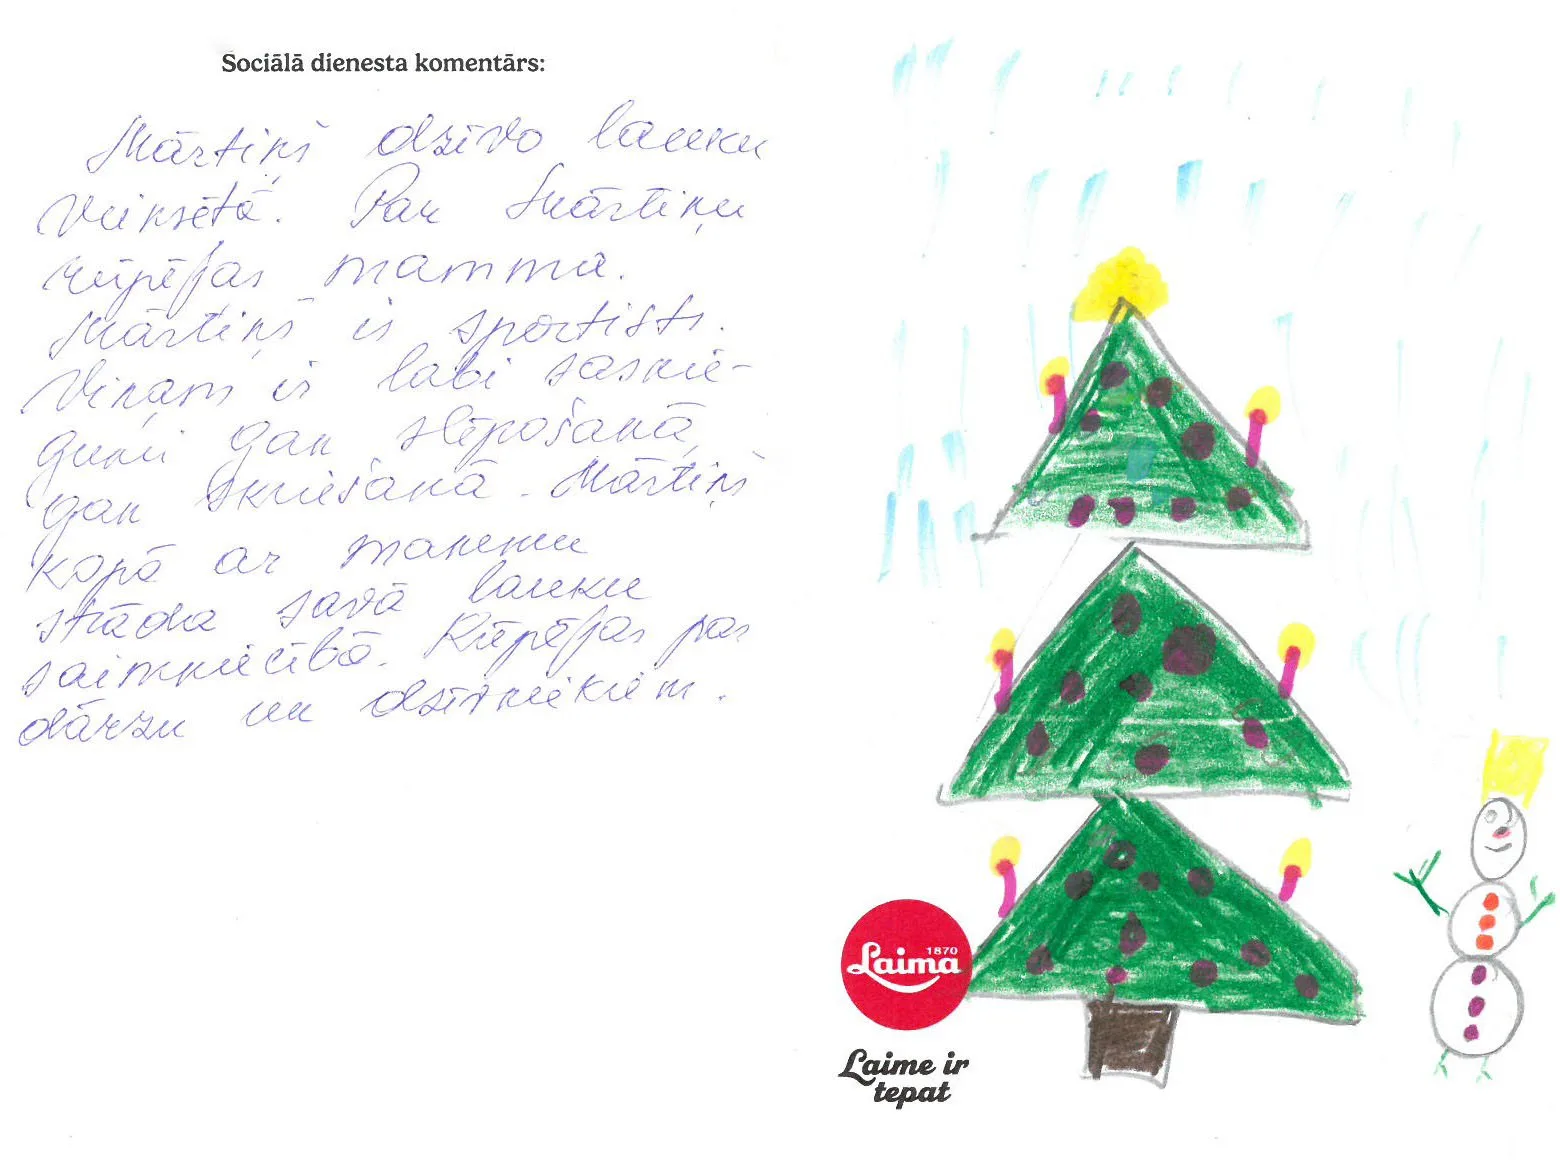 Sociālā dienesta komentārs:
Mārtiņš dzīvo lauku
viensētā. Par Mārtiņu
rūpējas mamma.
Mārtiņš ir sportists.
Viņam ir labi sasnie-
gumi gan slēpošanā,
gan skriešanā. Mārtiņš
kopā ar mammu
strādā savā lauku
saimniecībā. Rūpējas par
dārzu un dzīvniekiem.
1870
Laima
Laime ir
tepat